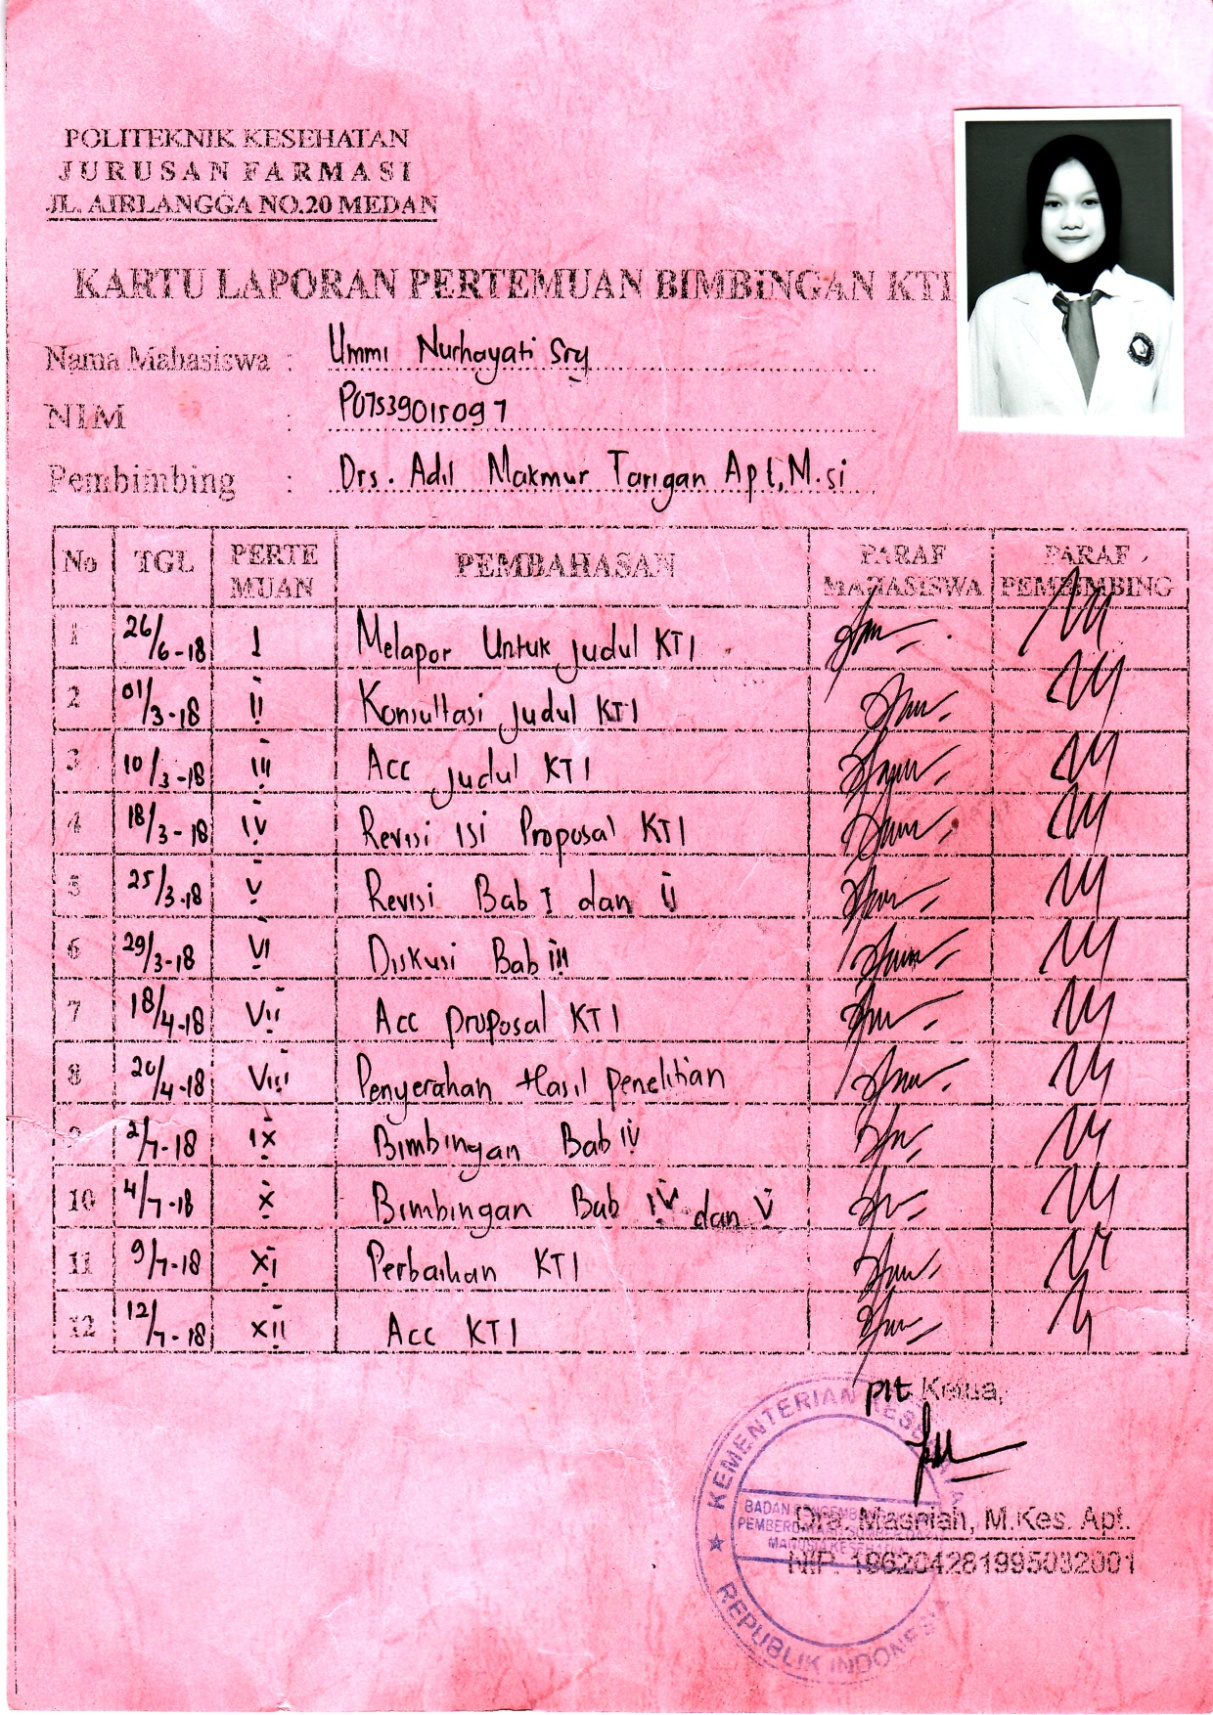 POLITEKNIK KESEHATAN
JURUSAN FARMASI
JL. AIRLANGGA NO.20 MEDAN
KARTU LAPORAN PERTEMUAN BIMBINGAN KTI
Nama Mahasiswa : Ummi Nurhayati Sry
NIM : P07539015097
Pembimbing : Drs. Adil Makmur Tarigan Apt, M.si
No TGL PERTE MUAN PEMBAHASAN PARAF MAHASISWA PARAF PEMBIMBING
1 26/6-18 I Melapor Untuk judul KTI
2 01/3-18 II Konsultasi judul KTI
3 10/3-18 III Acc judul KTI
4 18/3-18 IV Revisi Isi Proposal KTI
5 25/3-18 V Revisi Bab I dan II
6 29/3-18 VI Diskusi Bab III
7 18/4-18 VII Acc proposal KTI
8 20/4-18 VIII Penyerahan Hasil penelitian
9 2/7-18 IX Bimbingan Bab IV
10 4/7-18 X Bimbingan Bab IV dan V
11 9/7-18 XI Perbaikan KTI
12 12/7-18 XII Acc KTI
plt Ketua,
KEMENTERIAN KESEHATAN
BADAN PENGEMBANGAN
PEMBERDAYAAN SUMBER DAYA
MANUSIA KESEHATAN
REPUBLIK INDONESIA
Dra. Masniah, M.Kes. Apt.
NIP. 196204281995032001